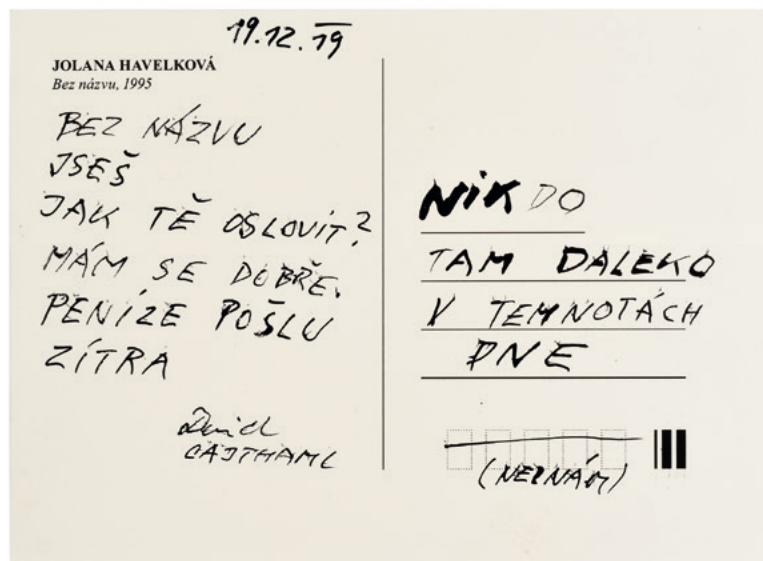 19.12.19
JOLANA HAVELKOVÁ
Bez názvu, 1995
BEZ NÁZVU
JSEŠ
JAK TĚ OSLOVIT?
MÁM SE DOBŘE.
PENÍZE POŠLU
ZÍTRA
David
CAJTHAML
NIKDO
TAM DALEKO
V TEMNOTÁCH
DNE
(NEZNÁM)